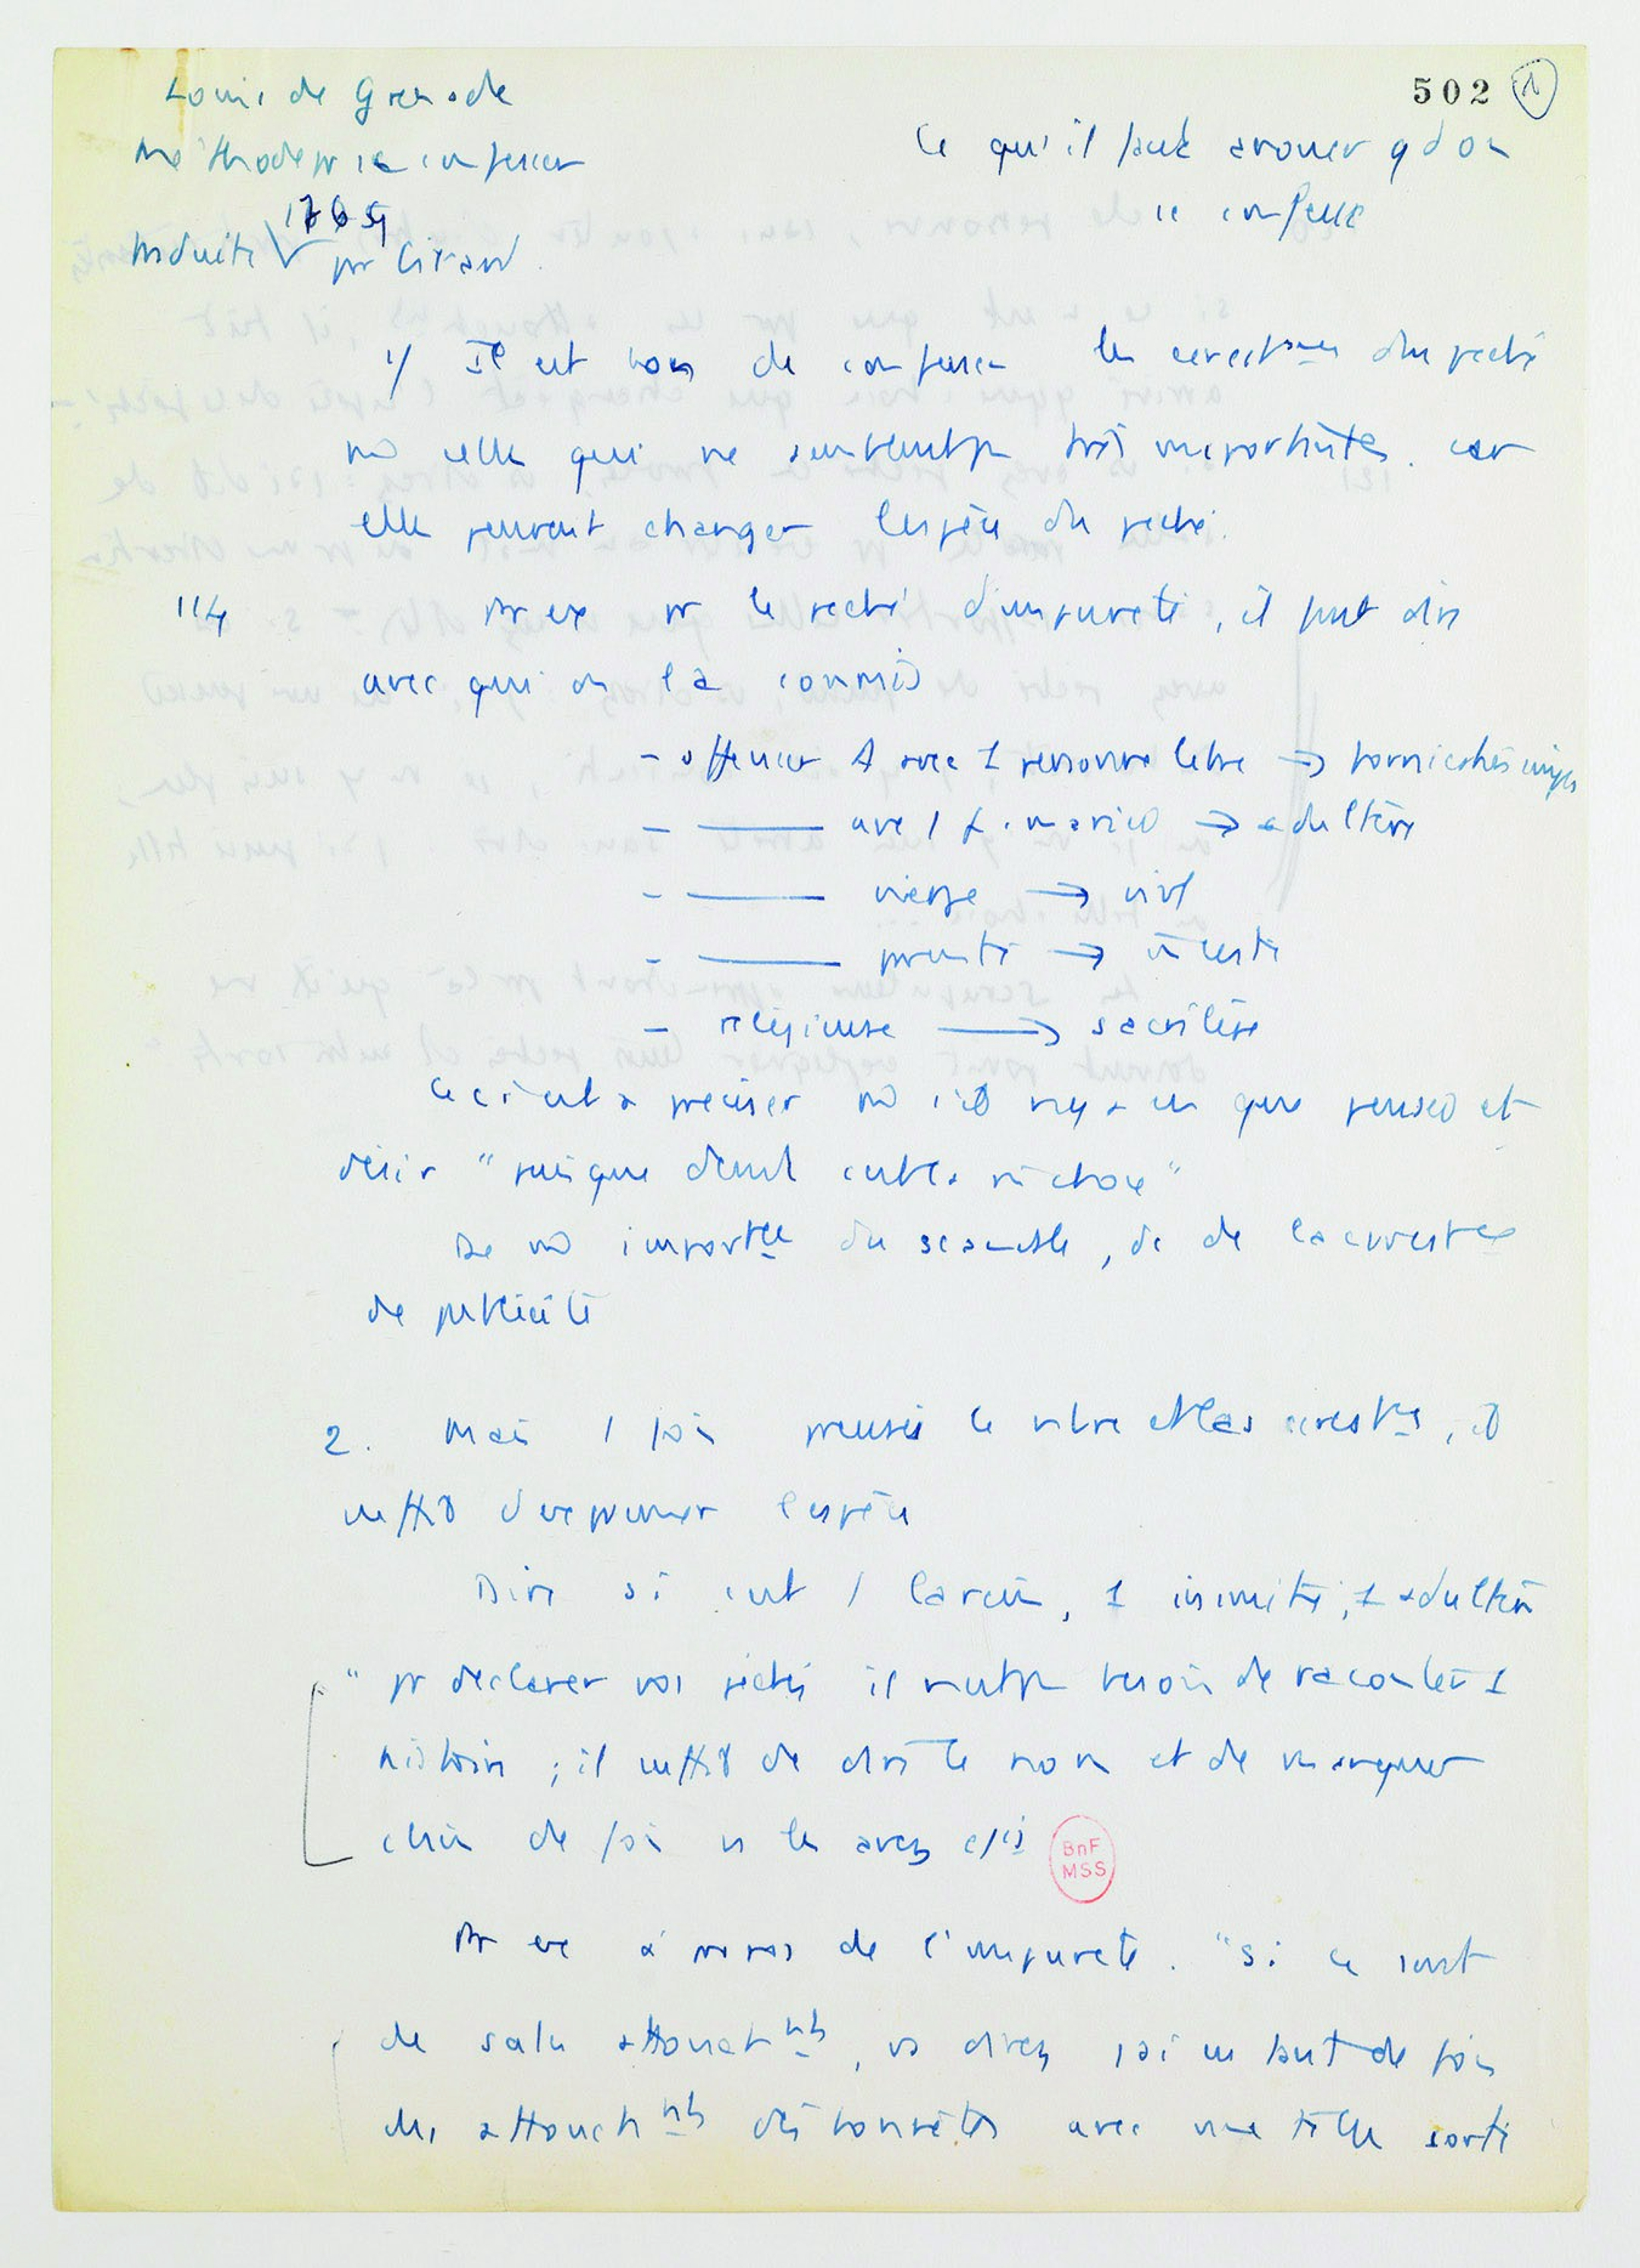 Louis de Grenade
502 1
Méthode pr se confesser
Ce qu'il faut avouer qd on
se confesse
1765
traduite pr Girard.
1/ Il est bon de confesser les circonst^ces du péché
m̂ celles qui ne semblent pas très importantes. car
elles peuvent changer l'espèce du péché.
114 Par ex pr le péché d'impureté, il faut dire
avec qui on l'a commis
- offenser D avec 1 personne libre → fornication simple
- —— avec 1 f. mariée → adultère
- —— vierge → viol
- —— parente → inceste
- religieuse → sacrilège
Ceci est à préciser m̂ s'il n'y a eu que pensée et
désir "puisque devant c'est la m̂ chose"
De m̂ importce du scandale, dc de la circonstce
de publicité
2. Mais 1 fois précisés le nbre et les circonstces, il
suffit d'exprimer l'espèce
Dire si c'est 1 larcin, 1 inimitié, 1 adultère
"pr déclarer vos péchés il n'est pas besoin de raconter 1
histoire ; il suffit de dire le nom et de marquer
cbien de fois vs les avez cis
BnF
MSS
Par ex à propos de l'impureté. "Si ce sont
de sales attouchnts, vs direz j'ai eu tant de fois
des attouchnts déshonnêtes avec une telle sorte